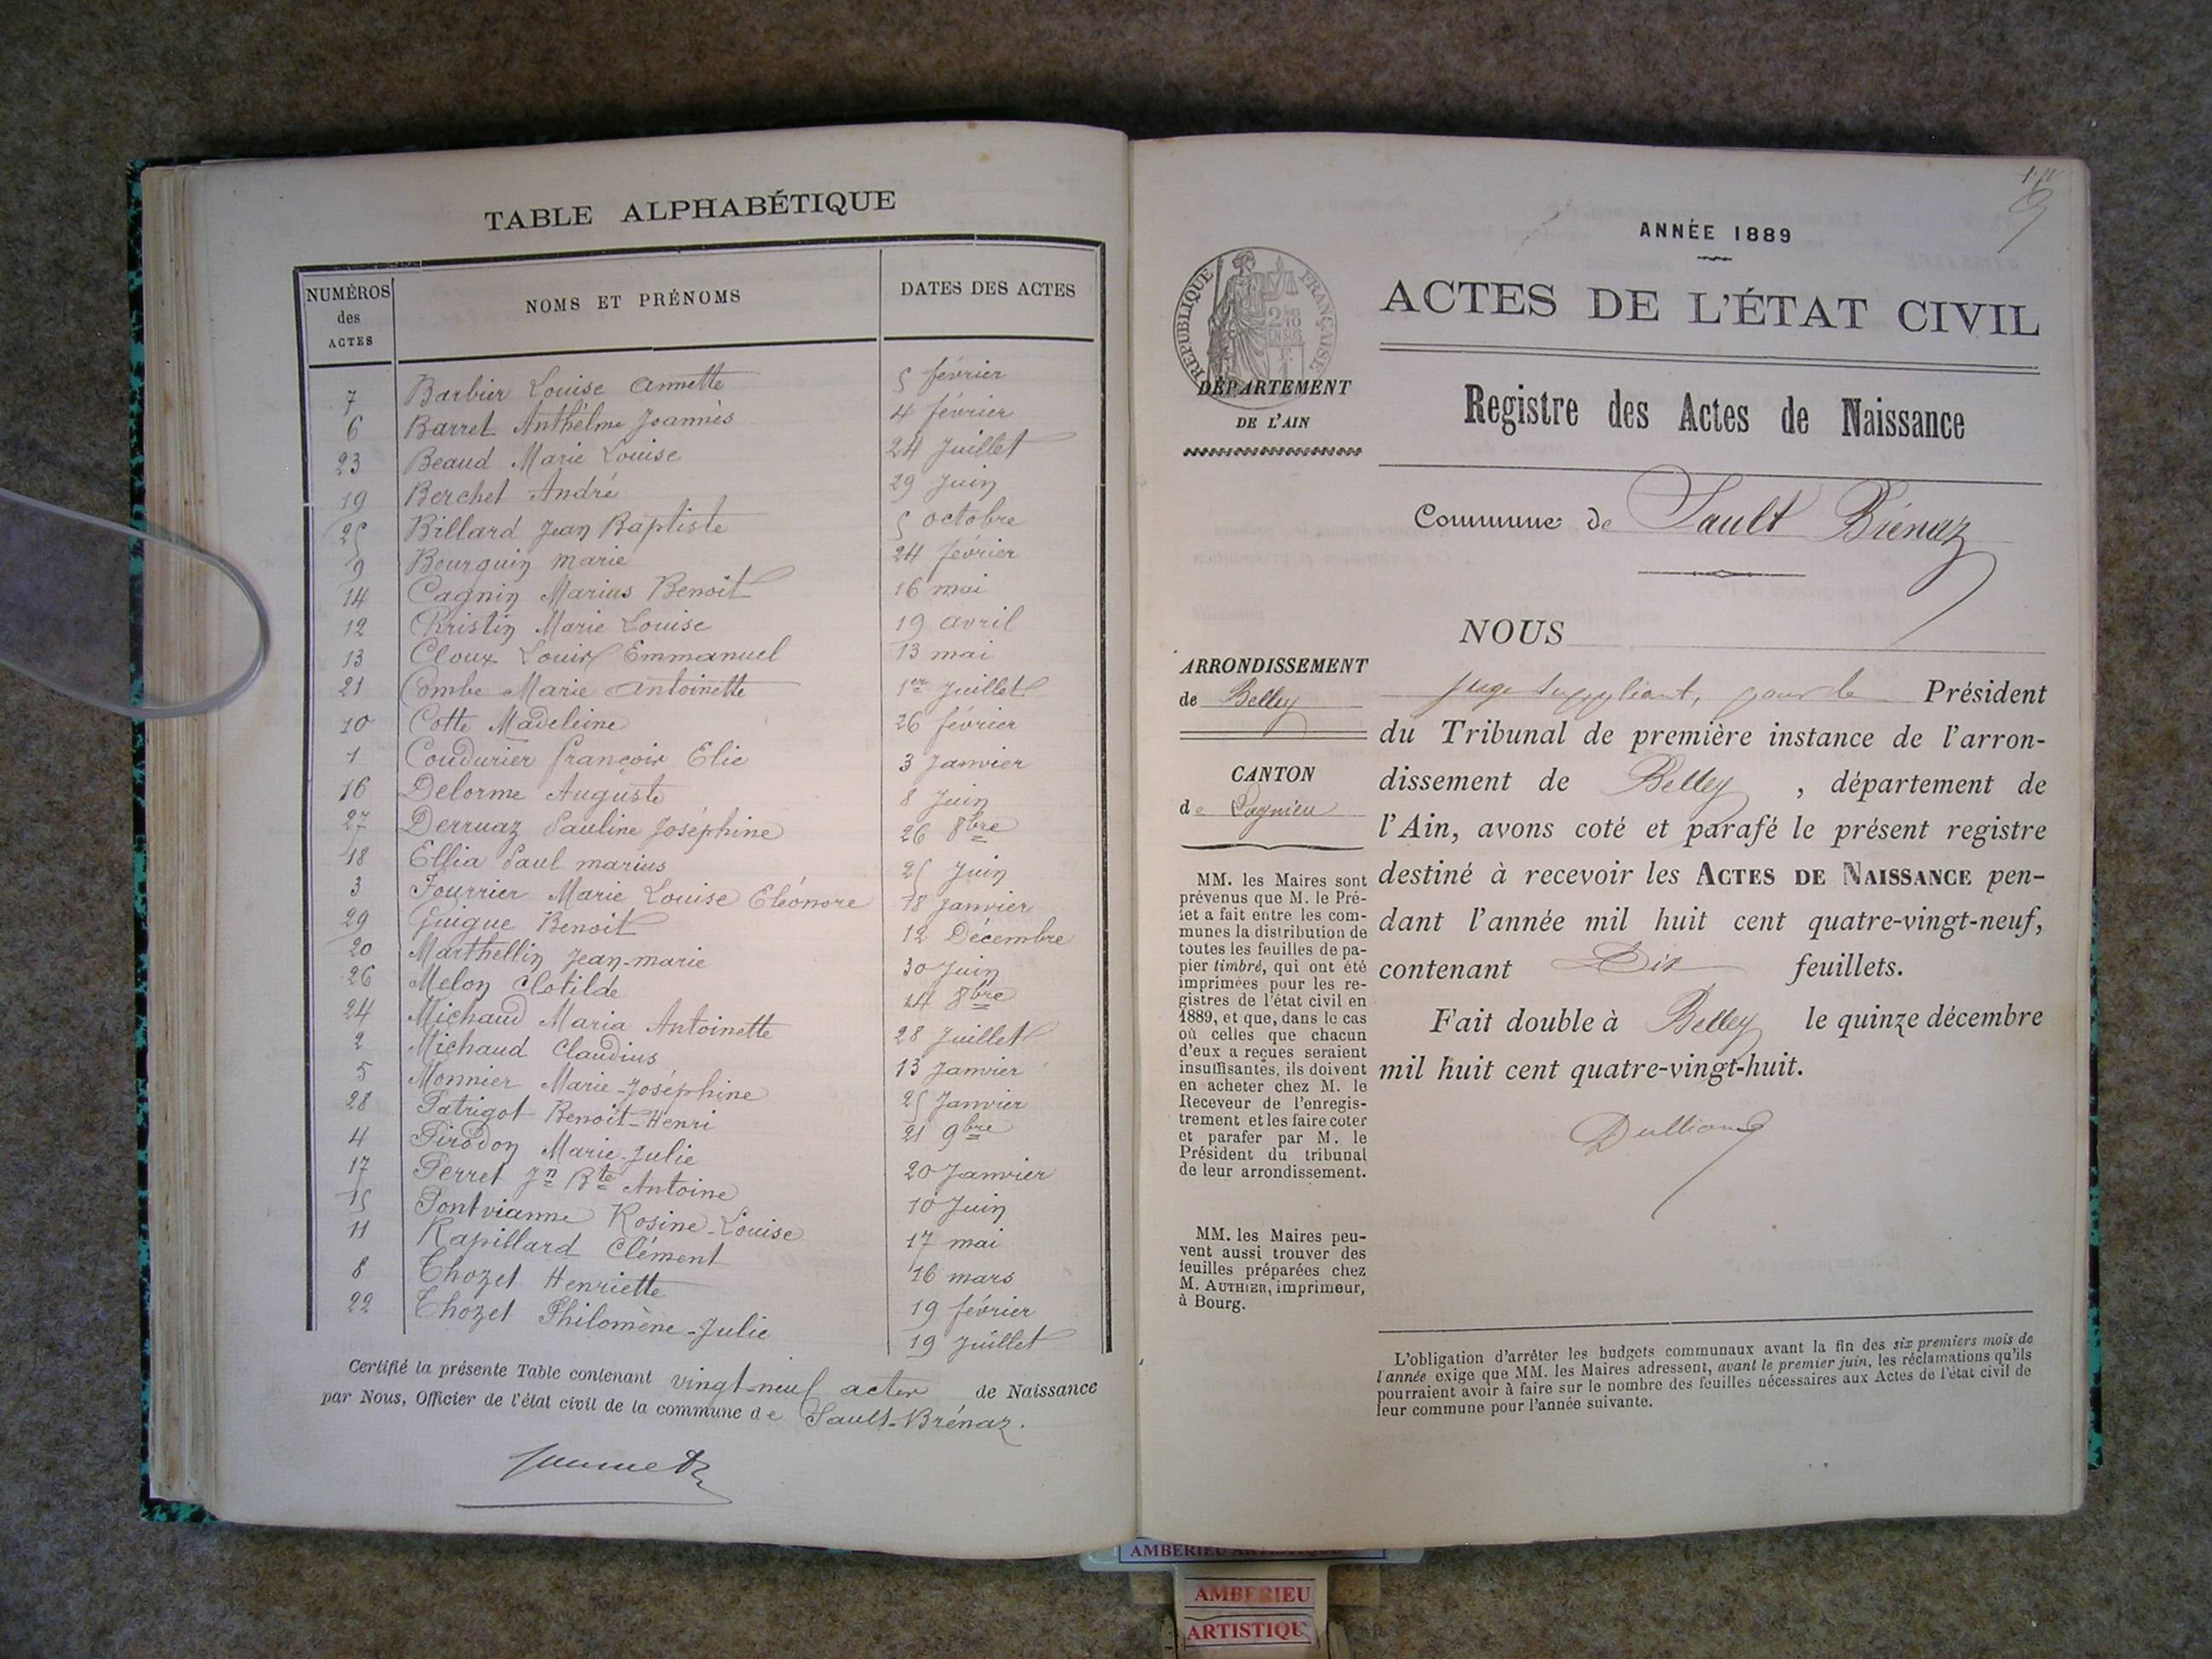 TABLE ALPHABÉTIQUE
NUMÉROS des ACTES
NOMS ET PRÉNOMS
DATES DES ACTES
7 Barbier Louise Annette 5 février
6 Barret Anthélme Joannès 4 février
23 Beaud Marie Louise 24 Juillet
19 Berchet André 29 Juin
25 Billard Jean Baptiste 5 octobre
9 Bourguin marie 24 février
14 Cagnin Marius Benoit 16 mai
12 Christin Marie Louise 19 avril
13 Cloux Louis Emmanuel 13 mai
21 Combe Marie Antoinette 1er Juillet
10 Cotte Madeleine 26 février
1 Coudurier françois Elie 3 Janvier
16 Delorme Auguste 8 Juin
27 Derruaz Pauline Joséphine 26 8bre
18 Ellia Paul marius 25 Juin
3 Fourrier Marie Louise Eléonore 18 Janvier
29 Guigue Benoit 12 Décembre
20 Marthellin Jean-marie 30 Juin
26 Melon Clotilde 14 8bre
24 Michaud Maria Antoinette 28 Juillet
2 Michaud Claudius 13 Janvier
5 Monnier Marie-Joséphine 25 Janvier
28 Patrigot Benoît-Henri 21 9bre
4 Pirodon Marie-Julie 20 Janvier
17 Perret Jn Bte Antoine 10 Juin
15 Pontvianne Rosine-Louise 17 mai
11 Rapillard Clément 16 mars
8 Thozet Henriette 19 février
22 Thozet Philomène-Julie 19 Juillet
Certifié la présente Table contenant vingt-neuf actes de Naissance
par Nous, Officier de l'état civil de la commune de Sault-Brénaz.
ANNÉE 1889
ACTES DE L'ÉTAT CIVIL
RÉPUBLIQUE FRANÇAISE
DÉPARTEMENT
DE L'AIN
Registre des Actes de Naissance
Commune de Sault Brénaz
NOUS
ARRONDISSEMENT
de Belley
juge suppléant, pour le Président
du Tribunal de première instance de l'arron-
dissement de Belley, département de
l'Ain, avons coté et parafé le présent registre
destiné à recevoir les ACTES DE NAISSANCE pen-
dant l'année mil huit cent quatre-vingt-neuf,
contenant Dix feuillets.
Fait double à Belley le quinze décembre
mil huit cent quatre-vingt-huit.
CANTON
de Lagnieu
MM. les Maires sont
prévenus que M. le Pré-
fet a fait entre les com-
munes la distribution de
toutes les feuilles de pa-
pier timbré, qui ont été
imprimées pour les re-
gistres de l'état civil en
1889, et que, dans le cas
où celles que chacun
d'eux a reçues seraient
insuffisantes, ils doivent
en acheter chez M. le
Receveur de l'enregis-
trement et les faire coter
et parafer par M. le
Président du tribunal
de leur arrondissement.
MM. les Maires peu-
vent aussi trouver des
feuilles préparées chez
M. AUTHIER, imprimeur,
à Bourg.
L'obligation d'arrêter les budgets communaux avant la fin des six premiers mois de
l'année exige que MM. les Maires adressent, avant le premier juin, les réclamations qu'ils
pourraient avoir à faire sur le nombre des feuilles nécessaires aux Actes de l'état civil de
leur commune pour l'année suivante.
AMBERIEU ARTISTIQUE
AMBERIEU
ARTISTIQUE